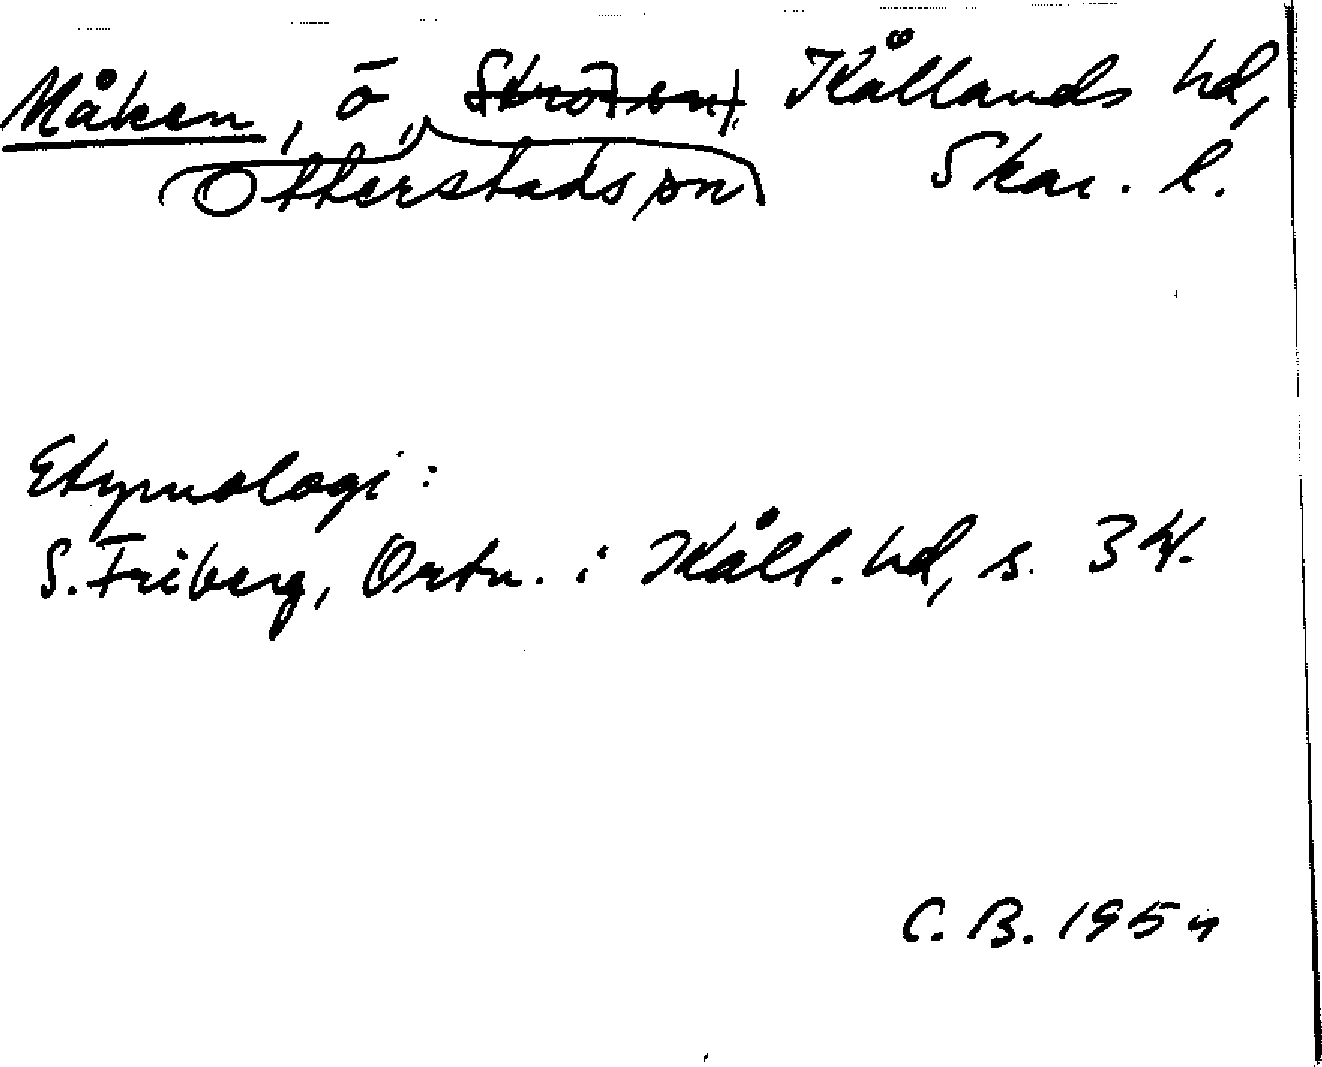 Måken, ö, Kållands hd,
Otterstads sn Skar. l.
Etymologi:
S. Friberg, Ortn. i Kåll. hd, s. 34.
C. B. 195